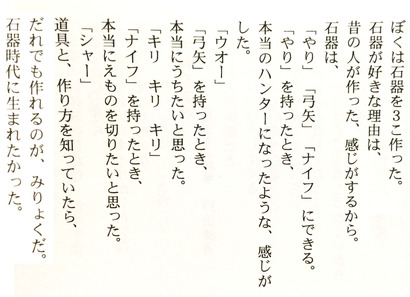 ぼくは石器を3こ作った。
石器が好きな理由は、
昔の人が作った、感じがするから。
石器は、
「やり」「弓矢」「ナイフ」にできる。
「やり」を持ったとき、
本当のハンターになったような、感じが
した。
「ウオー」
「弓矢」を持ったとき、
本当にうちたいと思った。
「キリ　キリ　キリ」
「ナイフ」を持ったとき、
本当にえものを切りたいと思った。
「シャー」
道具と、作り方を知っていたら、
だれでも作れるのが、みりょくだ。
石器時代に生まれたかった。